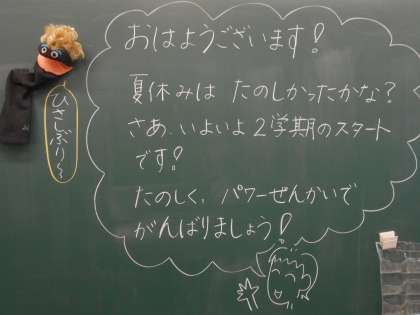 おはようございます!
夏休みは たのしかったかな?
さあ、いよいよ2学期のスタート
です!
たのしく、パワーぜんかいで
がんばりましょう!
ひさしぶり〜